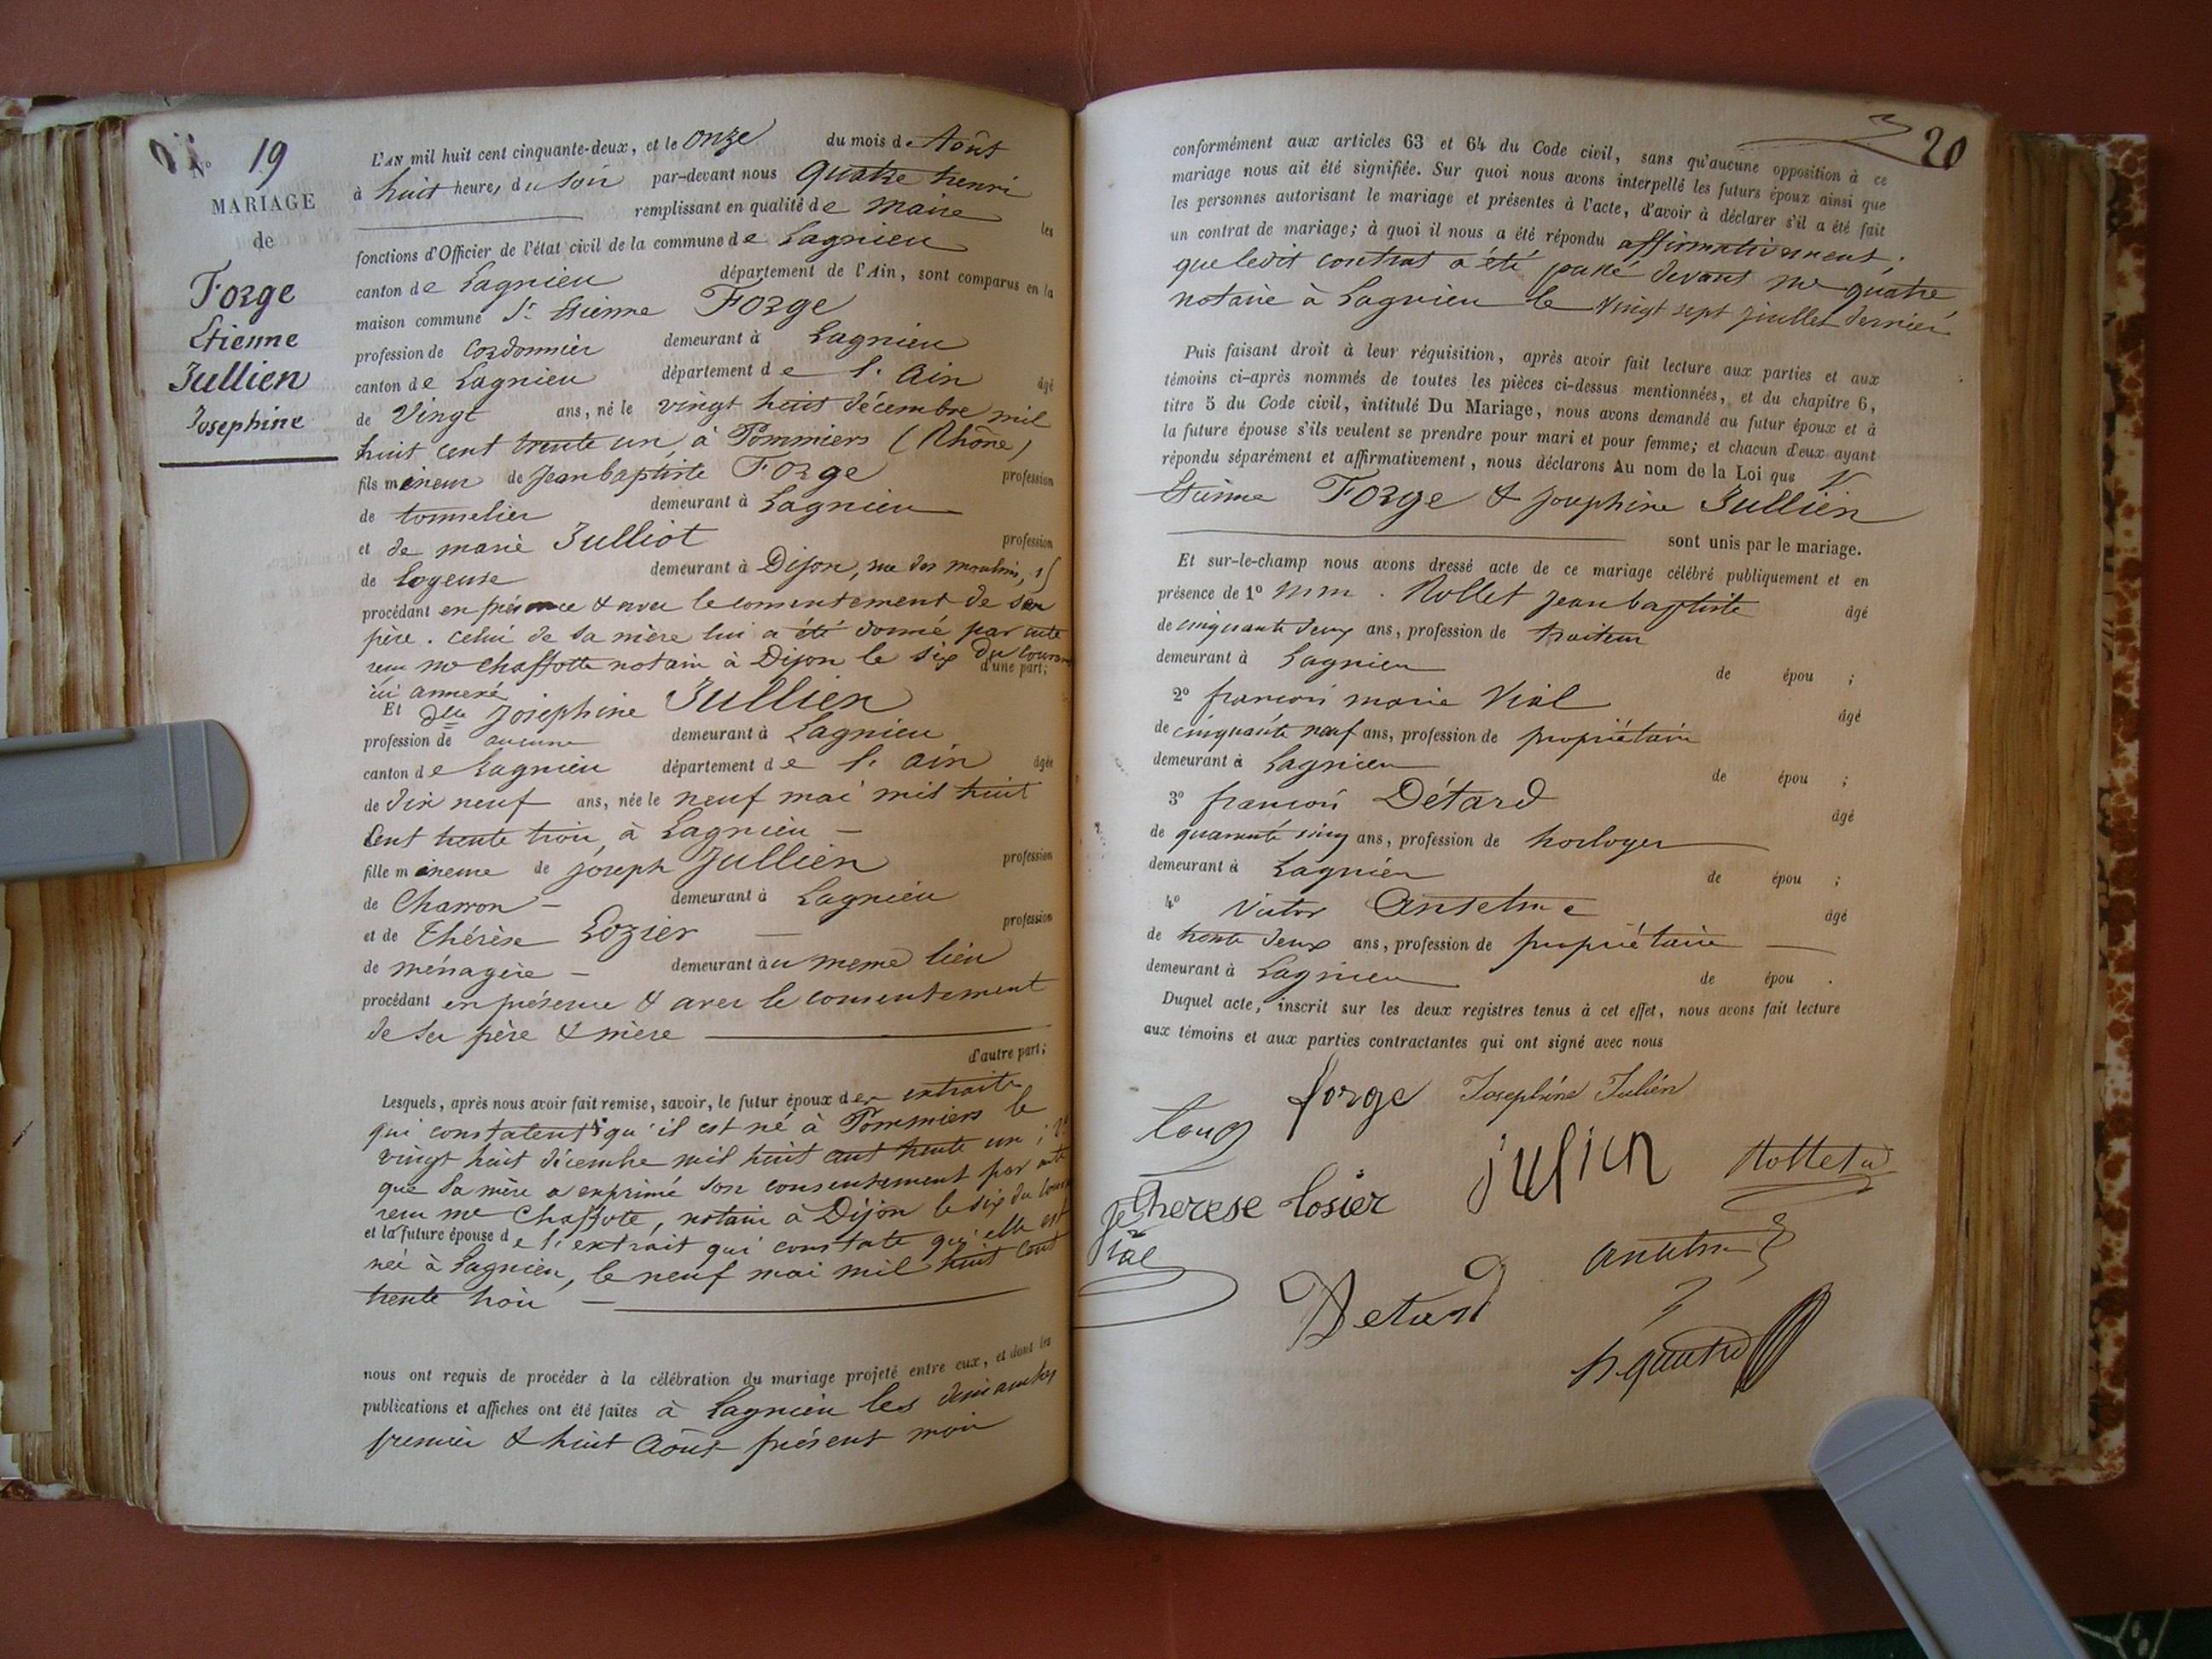 N° 19
MARIAGE
de
Forge
Etienne
Jullien
Josephine
L'AN mil huit cent cinquante-deux, et le onze du mois d. Aôut
à huit heures du soir par-devant nous Quatre henri
remplissant en qualité de Maire les
fonctions d'Officier de l'état civil de la commune de Lagnieu
canton de Lagnieu département de l'Ain, sont comparus en la
maison commune Sr. Etienne Forge
profession de Cordonnier demeurant à Lagnieu
canton de Lagnieu département de l'Ain âgé
de Vingt ans, né le vingt huit décembre mil
huit cent trente un, à Pommiers (Rhône)
fils mineur de Jean baptiste Forge profession
de tonnelier demeurant à Lagnieu
et de marie Julliot profession
de Logeuse demeurant à Dijon, rue des moulins, 15
procédant en présence & avec le consentement de son
père. Celui de sa mère lui a été donné par acte
reçu me Chaffotte notaire à Dijon le six du courant
d'une part;
ici annexé
Et dlle Josephine Jullien
profession de aucune demeurant à Lagnieu
canton de Lagnieu département de l'ain âgée
de dix neuf ans, née le neuf mai mil huit
Cent trente trois, à Lagnieu —
fille mineure de Joseph Jullien profession
de Charron — demeurant à Lagnieu
et de Thérèse Lozier — profession
de ménagère — demeurant au meme lieu
procédant en présence & avec le consentement
de ses père & mère
d'autre part;
Lesquels, après nous avoir fait remise, savoir, le futur époux des extraits
qui constatent qu'il est né à Pommiers le
vingt huit décembre mil huit cent trente un; 2°
que sa mère a exprimé son consentement par acte
reçu me Chaffote, notaire à Dijon le six du courant
et la future épouse de l'extrait qui constate qu'elle est
née à Lagnieu, le neuf mai mil huit cent
trente trois —
nous ont requis de procéder à la célébration du mariage projeté entre eux, et dont les
publications et affiches ont été faites à Lagnieu les dimanches
premier & huit Aôut présent mois
20
conformément aux articles 63 et 64 du Code civil, sans qu'aucune opposition à ce
mariage nous ait été signifiée. Sur quoi nous avons interpellé les futurs époux ainsi que
les personnes autorisant le mariage et présentes à l'acte, d'avoir à déclarer s'il a été fait
un contrat de mariage; à quoi il nous a été répondu affirmativement;
que ledit contrat a été passé devant me quatre
notaire à Lagnieu le vingt sept juillet dernier
Puis faisant droit à leur réquisition, après avoir fait lecture aux parties et aux
témoins ci-après nommés de toutes les pièces ci-dessus mentionnées, et du chapitre 6,
titre 5 du Code civil, intitulé Du Mariage, nous avons demandé au futur époux et à
la future épouse s'ils veulent se prendre pour mari et pour femme; et chacun d'eux ayant
répondu séparément et affirmativement, nous déclarons Au nom de la Loi que
Etienne Forge & Josephine Jullien
sont unis par le mariage.
Et sur-le-champ nous avons dressé acte de ce mariage célébré publiquement et en
présence de 1° mm. Rollet Jean baptiste âgé
de cinquante deux ans, profession de traiteur
demeurant à Lagnieu de épou ;
2° françois marie Vial âgé
de cinquante neuf ans, profession de propriétaire
demeurant à Lagnieu de épou ;
3° françois Détard âgé
de quarante cinq ans, profession de horloger
demeurant à Lagnieu de épou ;
4° Victor Anselme âgé
de trente deux ans, profession de propriétaire —
demeurant à Lagnieu de épou .
Duquel acte, inscrit sur les deux registres tenus à cet effet, nous avons fait lecture
aux témoins et aux parties contractantes qui ont signé avec nous
tous
forge Josephine Julién
julien
therese losier
Detard
h. quatre